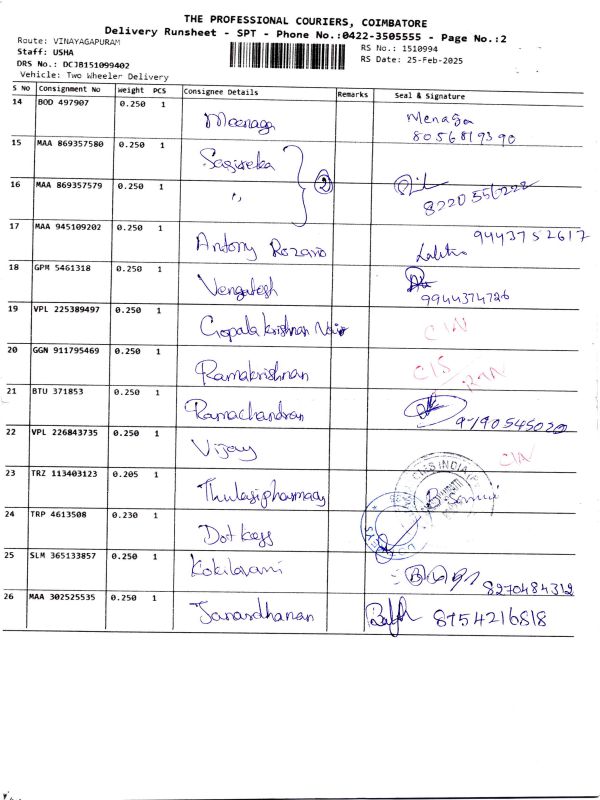 THE PROFESSIONAL COURIERS, COIMBATORE
Delivery Runsheet - SPT - Phone No.:0422-3505555 - Page No.:2
Route: VINAYAGAPURAM
Staff: USHA
DRS No.: DCJB151099402
Vehicle: Two Wheeler Delivery
RS No.: 1510994
RS Date: 25-Feb-2025
S No Consignment No Weight PCS Consignee Details Remarks Seal & Signature
14 BOD 497907 0.250 1 Meenaga Menaga
8056819390
15 MAA 869357580 0.250 1 Sagireka
16 MAA 869357579 0.250 1 " 2 8220556228
17 MAA 945109202 0.250 1 Antony Rozario Lalitha 9443752617
18 GPM 5461318 0.250 1 Vengatesh
9944374726
19 VPL 225389497 0.250 1 Gopala krishnan Nair CIN
20 GGN 911795469 0.250 1 Ramakrishnan CIS
21 BTU 371853 0.250 1 Ramachandran 9790545020
22 VPL 226843735 0.250 1 Vijay CIN
23 TRZ 113403123 0.205 1 Thulasi pharmacy
24 TRP 4613508 0.230 1 Dot Keys
25 SLM 365133857 0.250 1 Kokilavani 8270484312
26 MAA 302525535 0.250 1 Janardhanan 8754216818